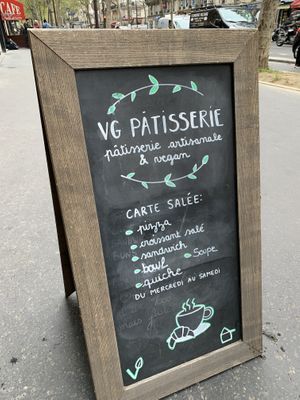 CAFE
VG PÂTISSERIE
pâtisserie artisanale
& vegan
CARTE SALÉE:
pizza
croissant salé
sandwich
bowl
Soupe
quiche
DU MERCREDI AU SAMEDI